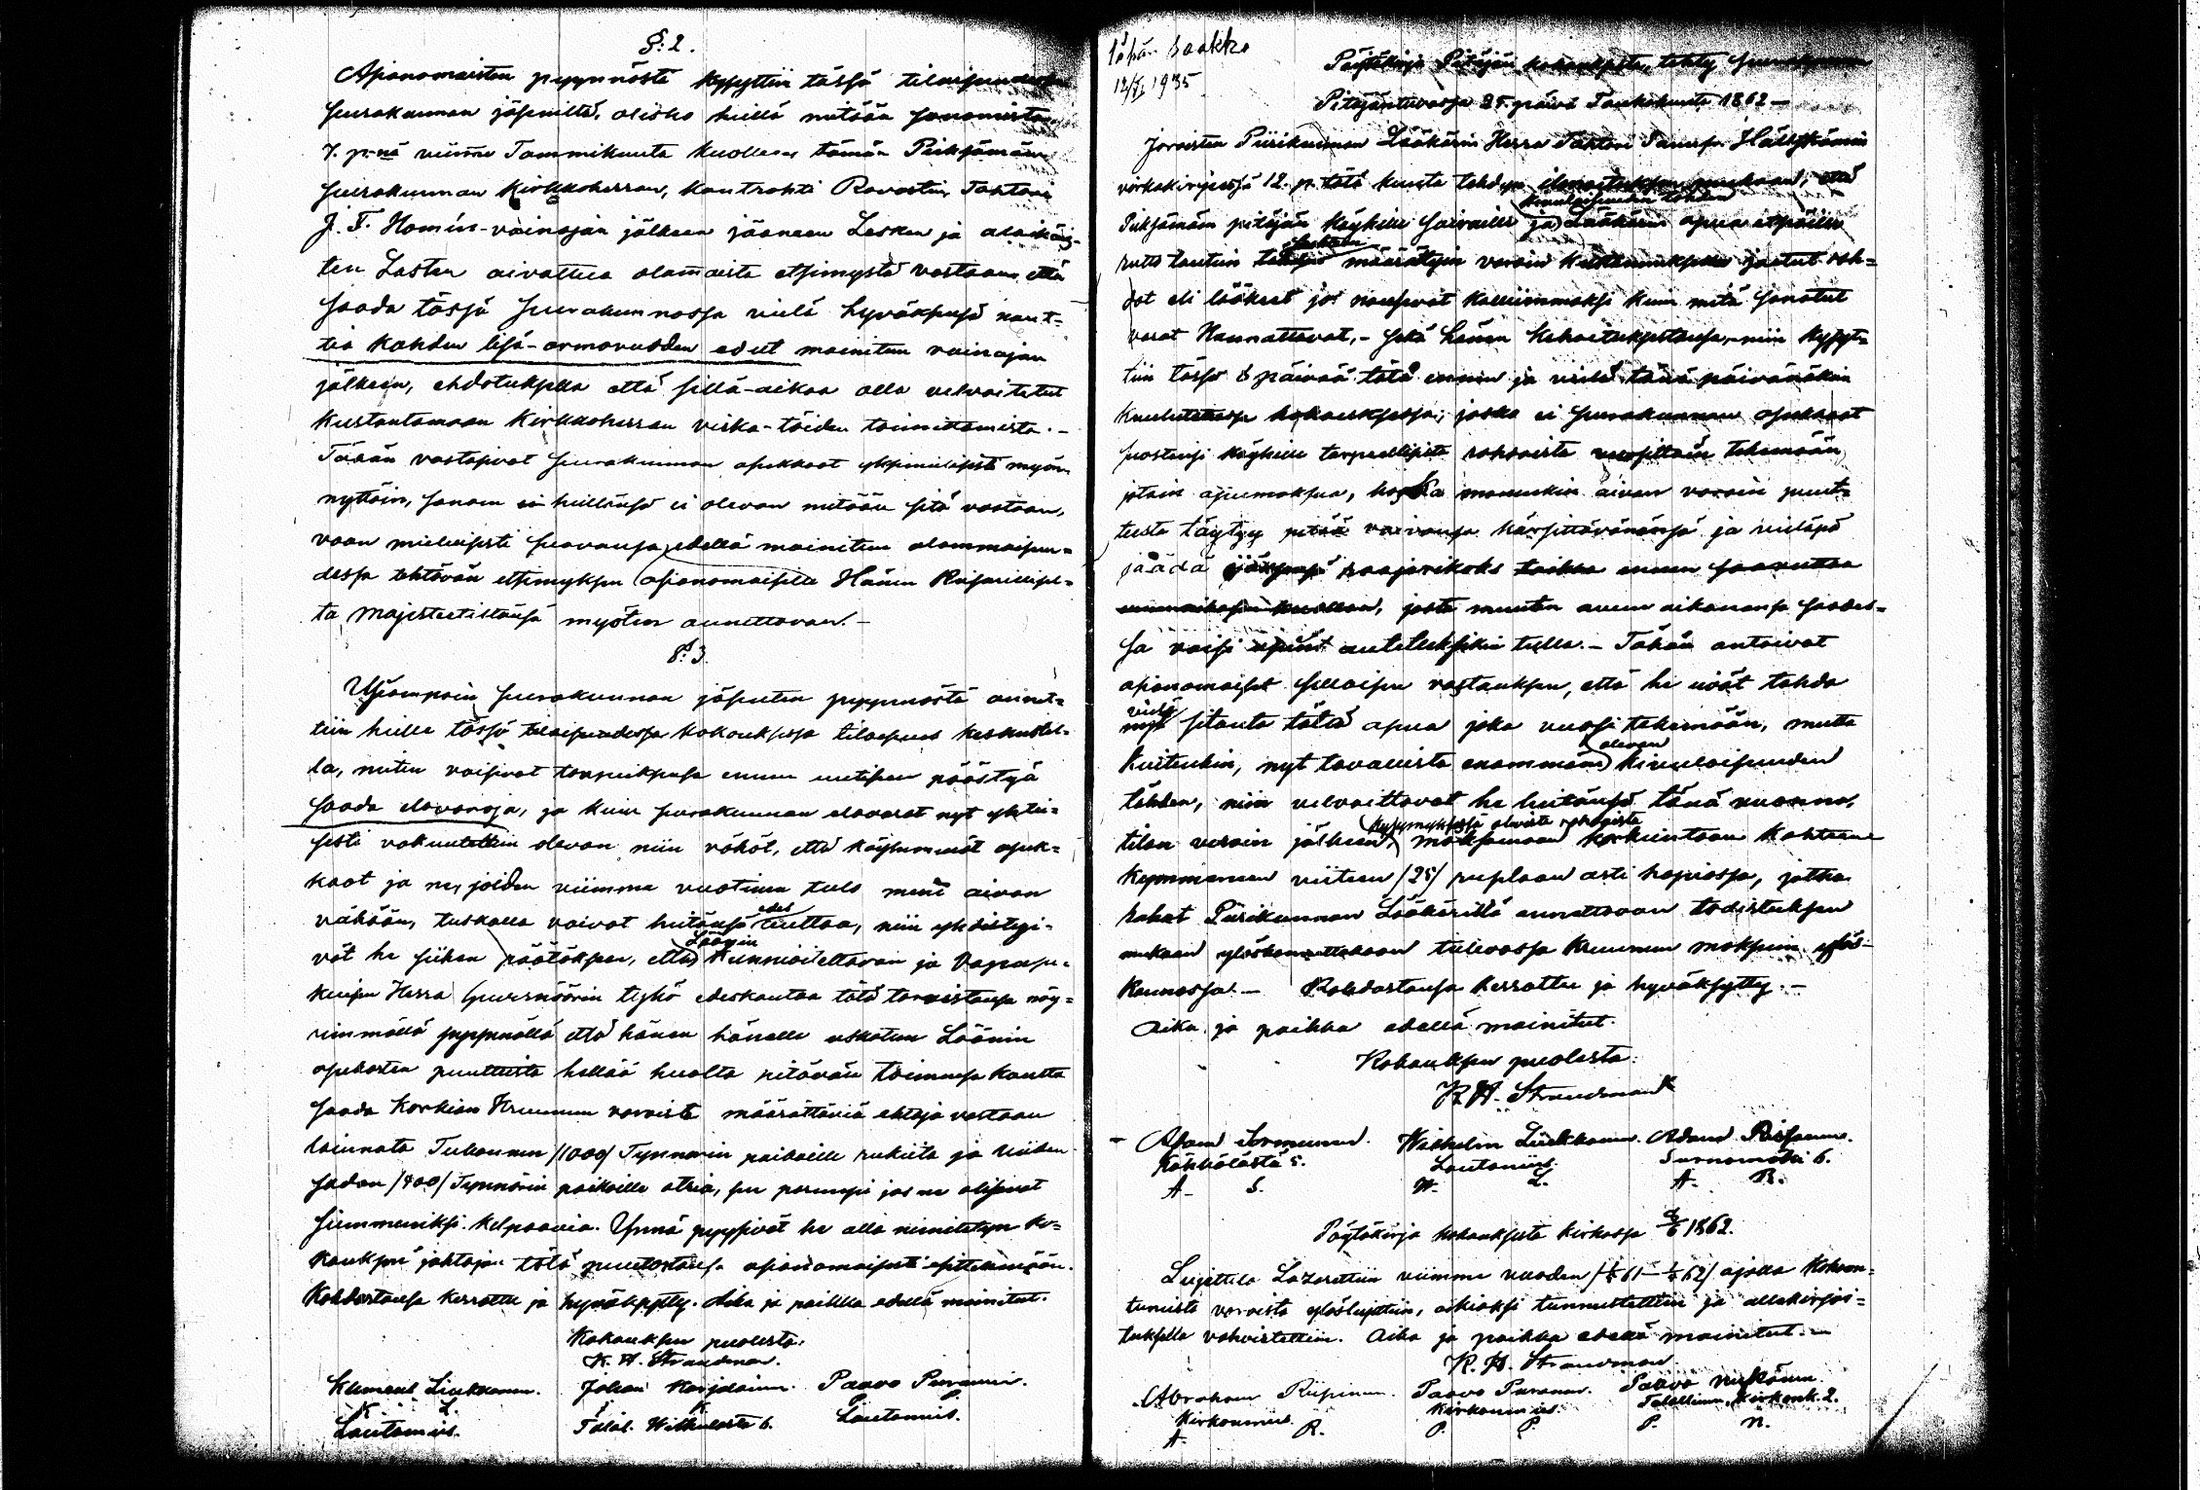 §: 2.
Asianomaisten pyynnöstä kysyttiin tässä tilaisuudessa
seurakunnan jäseniltä, olisko heillä mitään sanomista
7. p:nä viime Tammikuuta kuolleen tämän Pieksämäen
seurakunnan Kirkkoherran, Kontrahti Rovastin, Tohtori
J. F. Homén-vainajan jälkeen jääneen Lesken ja alaikäis-
ten Lasten aivottua alammaista etsimystä vastaan, että
saada tässä seurakunnassa vielä hyväksensä naut-
tia kahden lisä-armovuoden edut mainitun vainajan
jälkeen, ehdotuksella että sillä-aikaa olla velvoitetut
kustantamaan Kirkkoherran virka-töiden toimittamista. -
Tähän vastasivat seurakunnan asukkaat yksimielisesti myön-
nyttäin, sanoen heillänsä ei olevan mitään sitä vastaan,
vaan mieluisesti suovansa edellä mainitun alammaisuu-
dessa tehtävän etsimyksen asianomaisille Hänen Keisarillisel-
ta Majesteetiltänsä myöten annettavan. -
§: 3.
Useampain seurakunnan jäsenten pyynnöstä annet-
tiin heille tässä tilaisuudessa kokouksessa tilaisuus keskustel-
la, miten voisivat tarpeeksensa ennen uutisen päästyä
saada elovaroja, ja kuin seurakunnan elovarat nyt yhtei-
sesti vakuutettiin olevan niin vähät, että köyhemmät asuk-
kaat ja ne, joiden viimme vuotinen tulo meni aivan
vähään, tuskalla voivat heitänsä edes elättää, niin yhdistyi-
vät he siihen päätökseen, että Läänin Kunnioitettavan ja Vapaasu-
kuisen Herra Guvernöörin tykö edeskantaa tätä tarvistansa nöy-
rimmällä pyynnöllä että hänen hänelle uskotun Läänin
asukasten puutteista hellää huolta pitävän toimensa kautta
saada Korkian Kruunun varoista määrättäviä ehtoja vastaan
lainata Tuhannen /1000/ Tynnörin paikoille rukiita ja
sadan /400/ Tynnörin paikoille otria, sen parempi jos ne olisivat
siemmeniksi kelpaavia. Ynnä pyysivät he alla nimitetyn ko-
kouksen johtajan tätä puutostansa asianomaisesti esittelemään.
Kohdastansa kerrottu ja hyväksytty. Aika ja paikka edellä mainitut.
Kokouksen puolesta.
K. H. Strandman.
Klement Liukkonen. Johan Karjalainen. Paavo Puranen.
K. L. J. K. P. P.
Lautamies. Talol. Lautamies.
Tähän saakka
12/X 1935
Pöytäkirja Pitäjän kokouksesta, tehty
Pitäjäntuvassa 25. päivä Toukokuuta 1862 -
Joroisten Piirikunnan Lääkärin Herra Tohtori
virkakirjeessä 12. p. tätä kuuta tehdyn ilmoituksen mukaan, että
Pieksämäen pitäjän köyhille sairaille ja kivuloisuuden tähden Lääkärin apua etsiville
määrätyin varoin kustannuksella jaetut roh-
dot eli lääkeet jo nousevat kalliimmaksi kuin mitä sanotut
varat kannattavat, - sekä hänen kehoituksestansa, - niin kysyt-
tiin tässä 8 päivää tätä ennen ja vielä tänä päivänäkin
kuulutetussa kokouksessa; joska ei seurakunnan asukkaat
suostuisi köyhille tarpeellisista rohdoista vuosittain tekemään
jotain apumaksua, koska monenkin aivan varain puut-
teesta täytyy vaivansa kärsittävänänsä ja
jäädä raajarikoks taikka ennen
kuolla, josta muuten avun aikanansa saades-
sa voisi autetuksikin tulla. - Tähän antoivat
asianomaiset sellaisen vastauksen, että he eivät tahdo
vielä sitouta tätä apua joka vuosi tekemään, mutta
kuitenkin, nyt tavallista enammän olevan kivuloisuuden
tähden, niin velvoittavat he heitänsä tänä vuonna,
tilan veroin jälkeen, kysymyksessä olevista rohdoista maksamaan korkeintaan kahteen
kymmeneen viiteen /25/ ruplaan asti hopiassa, jotka
rahat Piirikunnan Lääkäriltä annettavan todistuksen
mukaan ylöskannettakoon tulevassa Kruunun maksuin ylös-
kannossa. - Kohdastansa kerrottu ja hyväksytty. -
Aika ja paikka edellä mainitut.
Kokouksen puolesta:
K. H. Strandman
Adam Sormunen. Wilhelm Liukkonen. Adam
Lautamies.
A. S. W. L. A. R.
Pöytäkirja kokouksesta kirkossa 1862.
Lasarettiin viimme vuoden ajalla kokoon-
tuneista varoista ylösluettiin, oikiaksi tunnustettiin ja allekirjoi-
tuksella vahvistettiin. Aika ja paikka edellä mainitut. -
K. H. Strandman
Abraham Riipinen. Paavo Puranen. Paavo
Kirkonmies. Kirkonmies.
A. R. P. P. P. N.